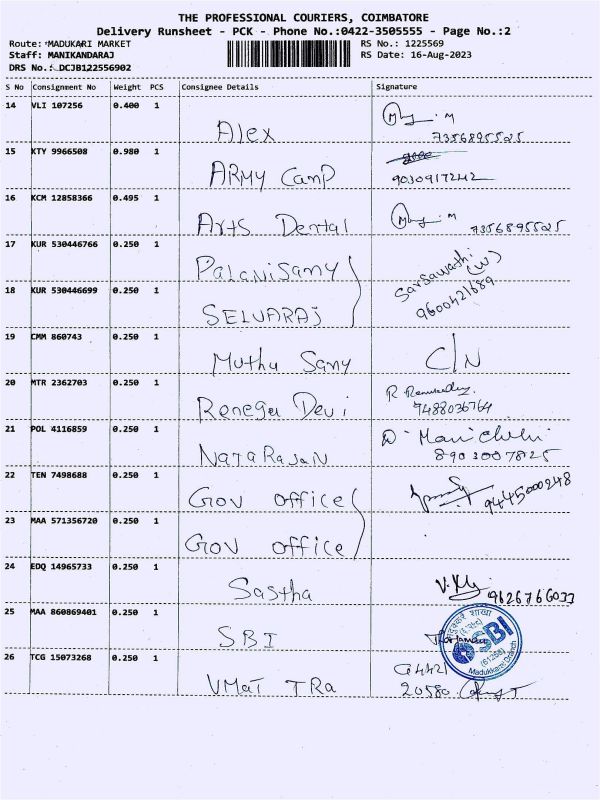 THE PROFESSIONAL COURIERS, COIMBATORE
Delivery Runsheet - PCK - Phone No.:0422-3505555 - Page No.:2
Route: MADUKARI MARKET RS No.: 1225569
Staff: MANIKANDARAJ RS Date: 16-Aug-2023
DRS No.: DCJB122556902
S No Consignment No Weight PCS Consignee Details Signature
14 VLI 107256 0.400 1 Alex M
7356895525
15 KTY 9966508 0.980 1 ARMY CamP
9030917242
16 KCM 12858366 0.495 1 Arts Dental M 7356895525
17 KUR 530446766 0.250 1 PALANISamy Sarsawathi (W)
9600421689
18 KUR 530446699 0.250 1 SELVARAJ
19 CMM 860743 0.250 1 Muthu Samy C/N
20 MTR 2362703 0.250 1 Renega Devi R
7488036764
21 POL 4116859 0.250 1 NATARAJAN
8903007825
22 TEN 7498688 0.250 1 Gov office 9445000248
23 MAA 571356720 0.250 1 Gov office
24 EDQ 14965733 0.250 1 Sastha 9626766033
25 MAA 860869401 0.250 1 SBI
SBI
(61258)
Madukkarai Branch
26 TCG 15073268 0.250 1 VMaT TRa G4421
20580